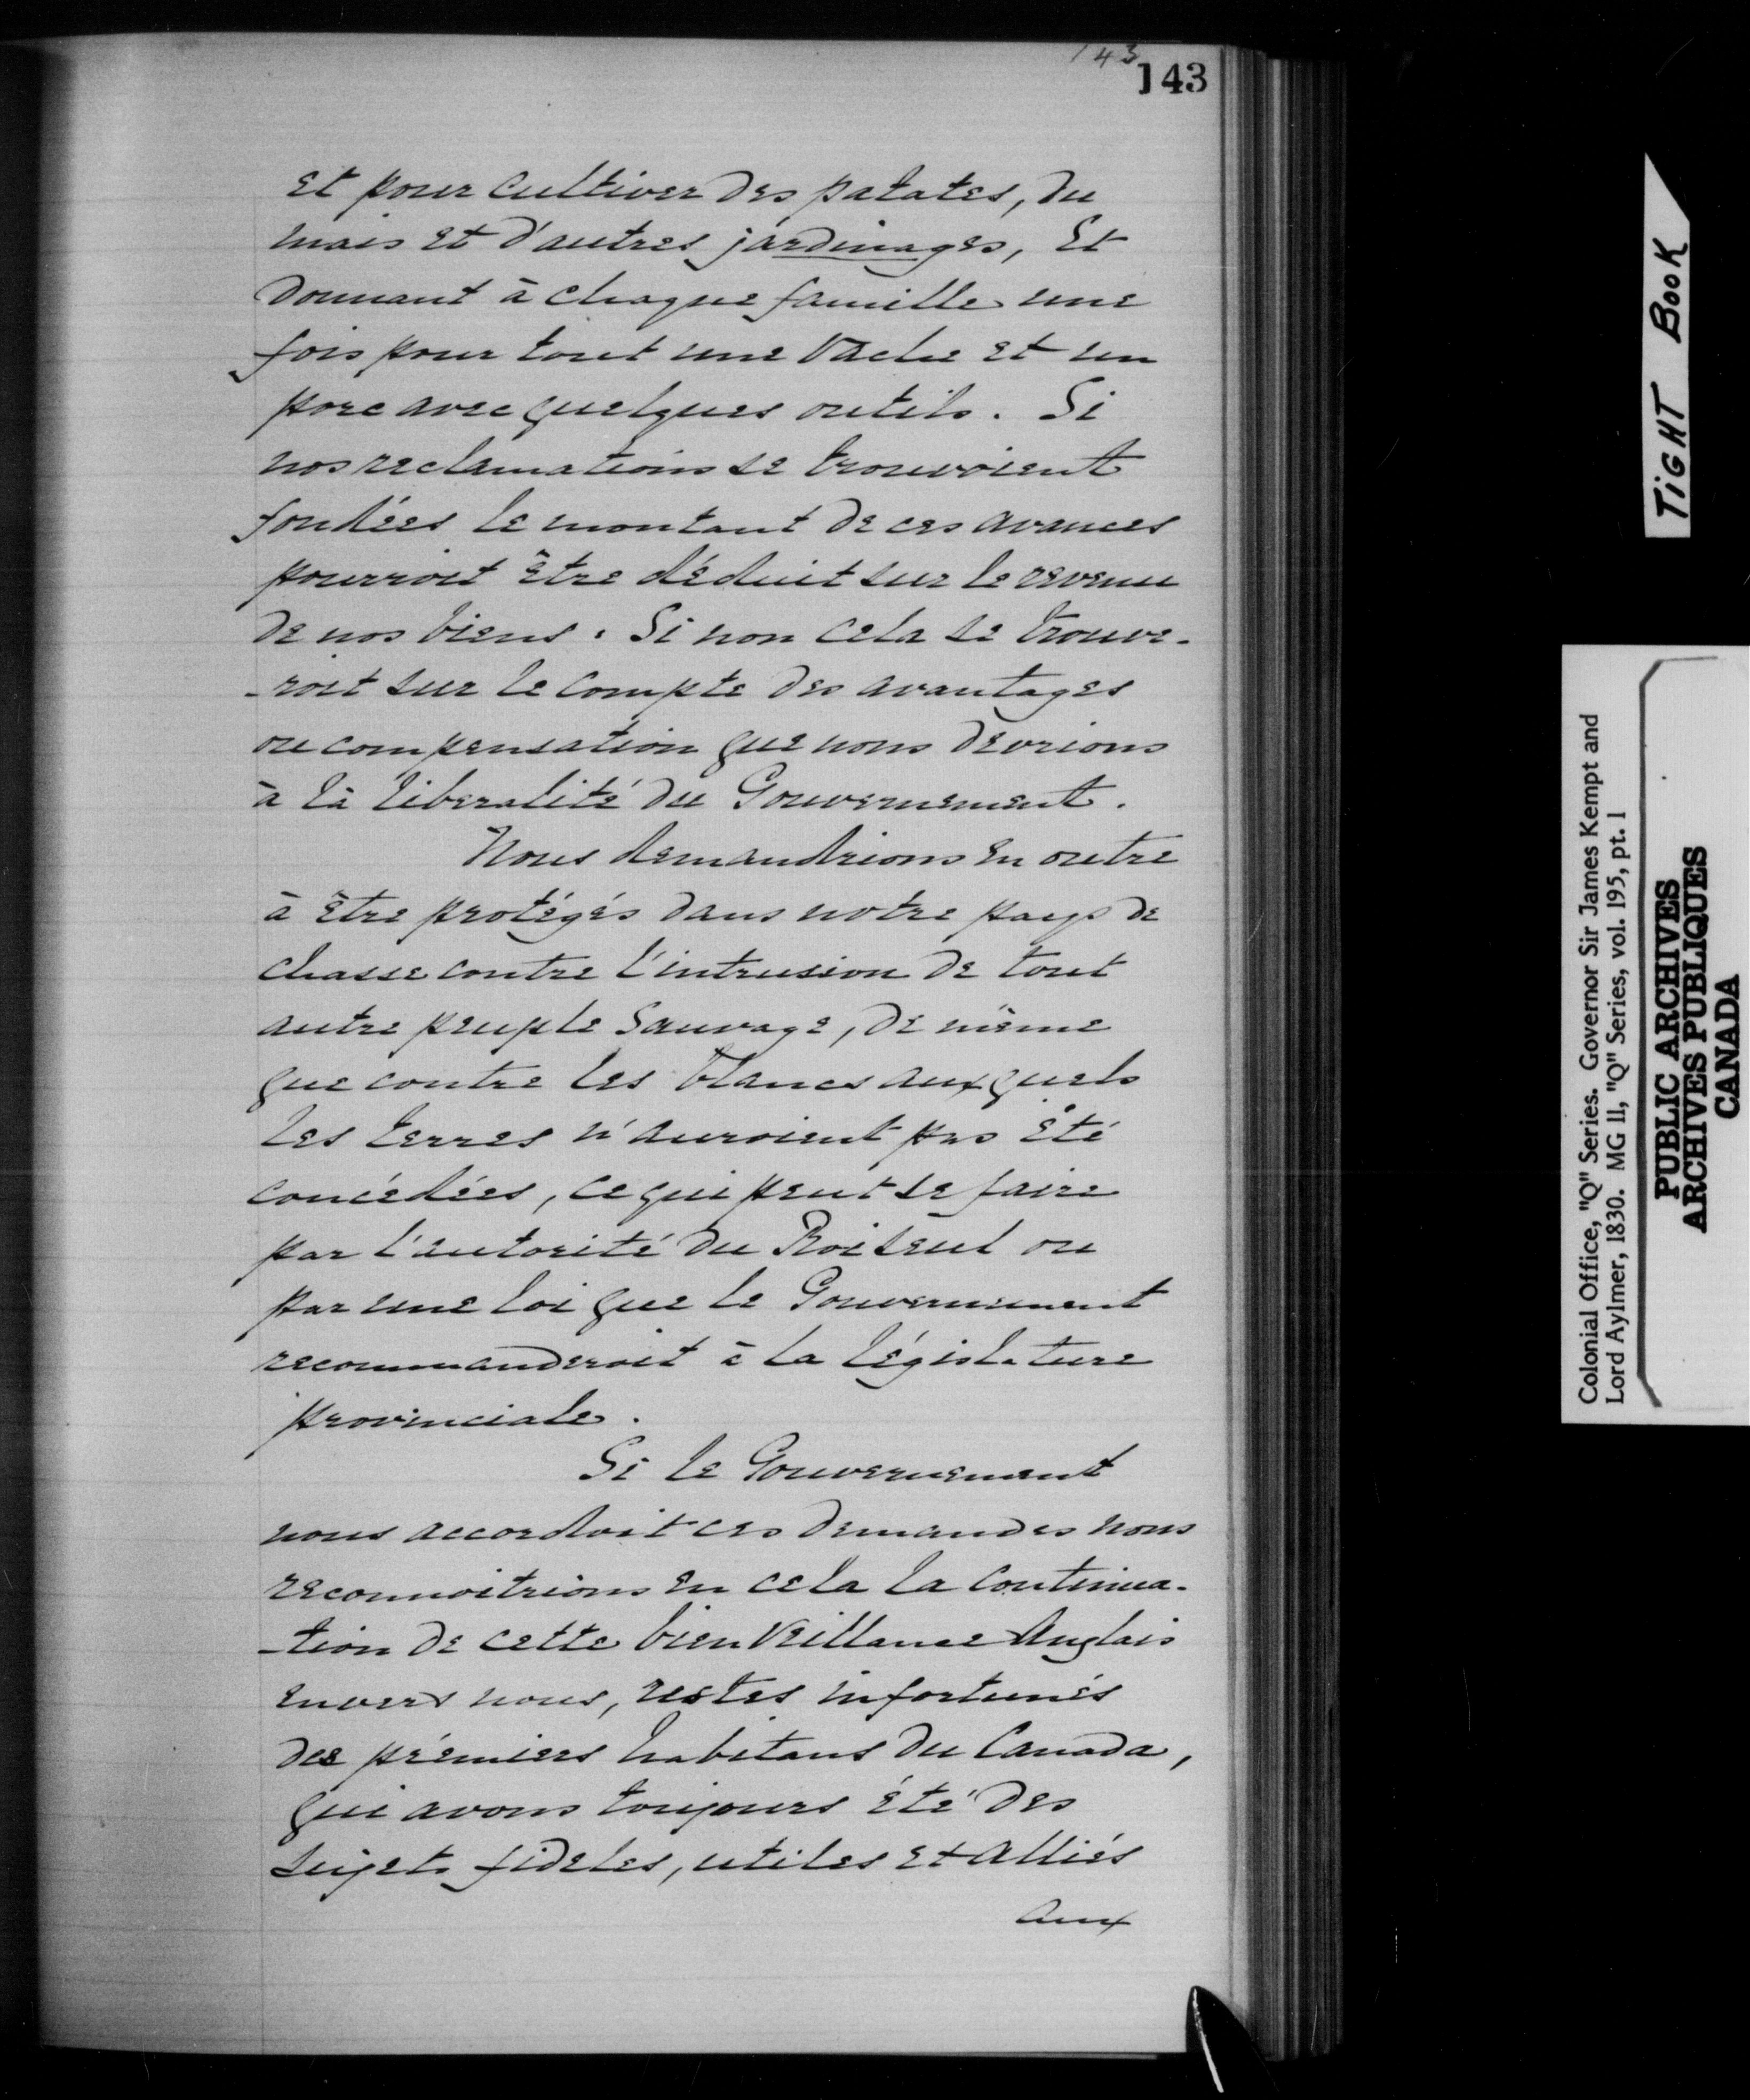 143
143
et pour cultiver des patates, du
mais et d'autres jardinages, Et
donnant à chaque famille une
fois pour tout une vache et un
porc avec quelques outils. Si
nos reclamations se trouvoient
fondées le montant de ces avances
pourroit être déduit sur le revenu
de nos biens. Si non cela se trouve-
-roit sur le compte des avantages
ou compensation que nous devrions
à la liberalité du Gouvernement.
Nous demandrions en outre
à être protégés dans notre pays de
chasse contre l'intrusion de tout
autre peuple Sauvage, de même
que contre les blancs auxquels
les terres n'auroient pas été
concédées, ce qui peut se faire
par l'autorité du Roi seul ou
par une loi que le Gouvernement
recommanderoit à la législature
provinciale.
Si le Gouvernement
nous accordoit ces demandes nous
reconnoitrions en cela la continua-
-tion de cette bien Veillance Anglais
envers nous, restes infortunés
des prémiers habitans du Canada,
qui avons toujours été des
sujets fideles, utiles et alliés
aux
TIGHT BOOK
Colonial Office, "Q" Series. Governor Sir James Kempt and
Lord Aylmer, 1830. MG 11, "Q" Series, vol. 195, pt. 1
PUBLIC ARCHIVES
ARCHIVES PUBLIQUES
CANADA